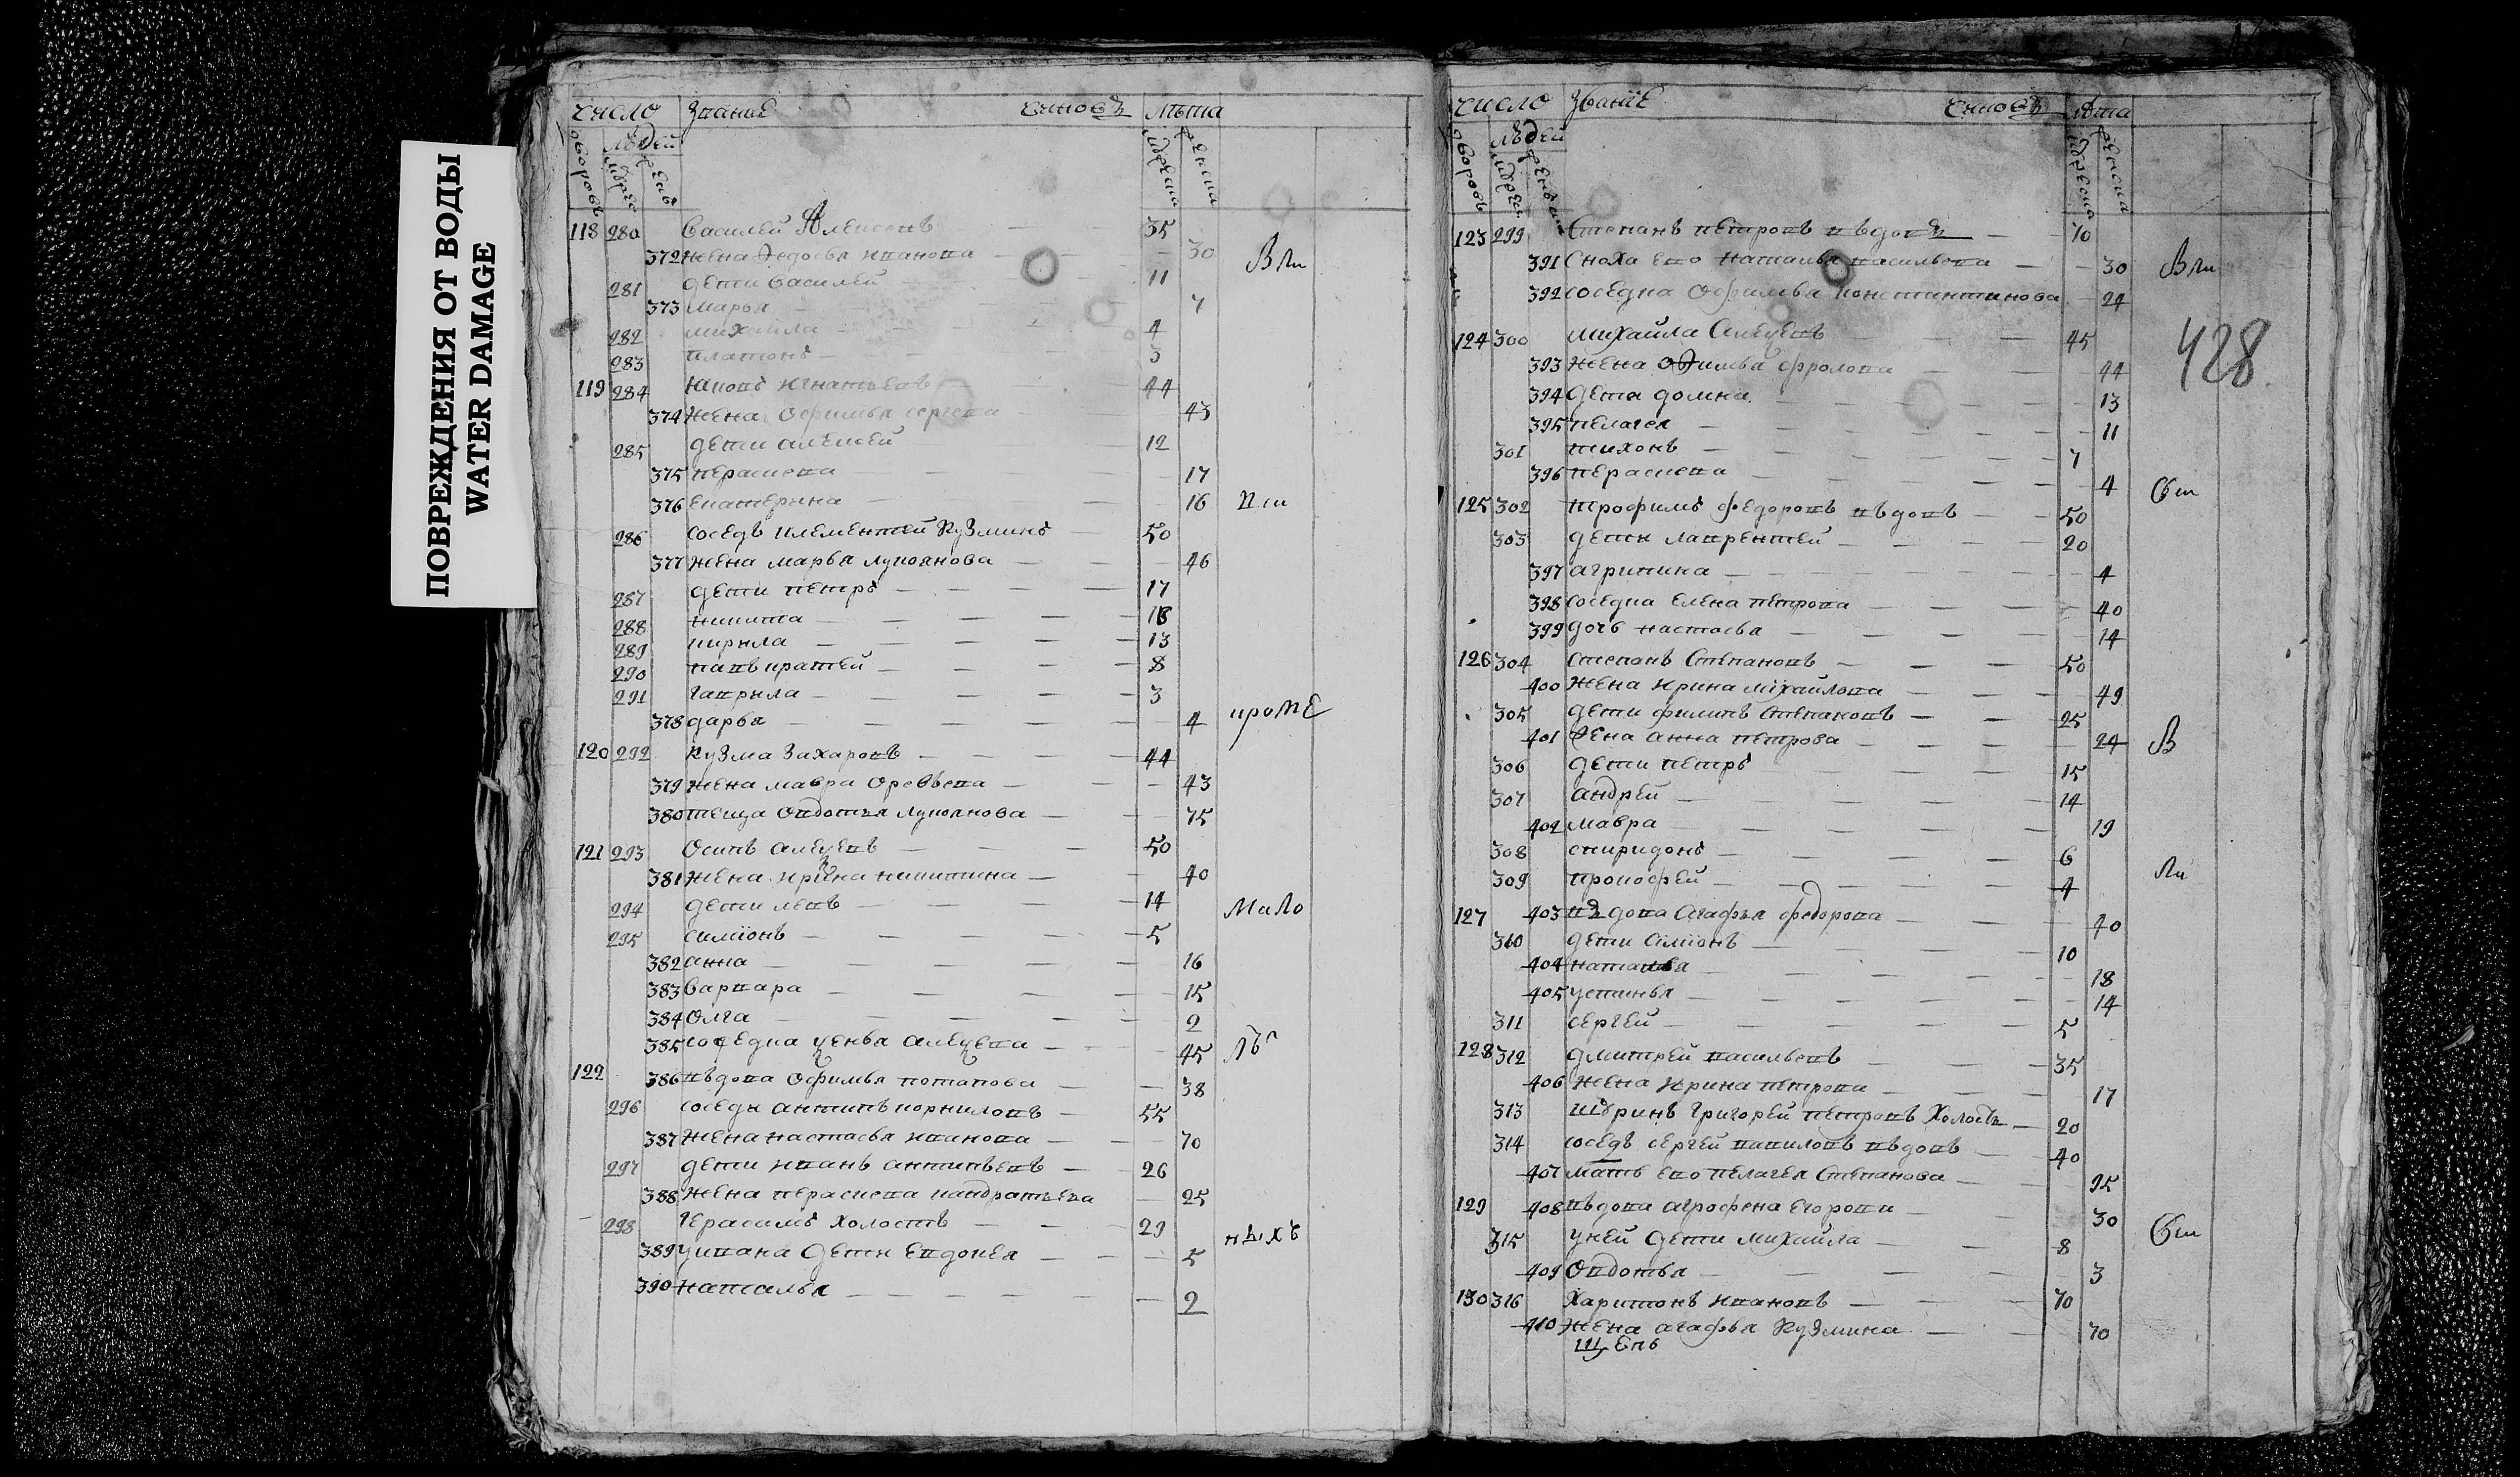 ПОВРЕЖДЕНИЯ ОТ ВОДЫ
WATER DAMAGE
число Званıе чиновъ Лѣта
дворовъ людей мужеска женска
118 280 Василей Алексеевъ 35
372 жена Федосья иванова 30
281 дети василей 11
373 марья 7
282 михайла 4
283 платонъ 3
119 284 игнатьевъ 44
374 жена Офимья сергева 43
285 дети алексей 12
375 параскева 17
376 екатерина 16
286 соседъ клементей кузминъ 50
377 жена марья лукоянова 46
287 дети петръ 17
288 никита 18
289 кирила 13
290 8
291 гаврила 3
378 дарья 4
120 292 кузма захаровъ 44
379 жена мавра 43
380 теща овдотья лукоянова 75
121 293 Осипъ 50
381 жена ирина никитина 40
294 дети левъ 14
295 симıонъ 5
382 анна 16
383 варвара 15
384 олга 2
385 соседка 45
122 386 вдова офимья потапова 38
296 соседъ антипъ корниловъ 55
387 жена настасья иванова 70
297 дети иванъ антипьевъ 26
388 жена параскева кандратьева 25
298 герасимъ холостъ 29
389 уивана дети евдокея 5
390 наталья 2
кроме
мало
лѣт
ныхъ
число Званıе чиновъ лѣта
дворовъ людей мужеска женска
123 299 степанъ петровъ вдовъ 70
391 сноха ево наталья васильева 30
392 соседка офимья констинтинова 24
428
124 300 михайла 45
393 жена офимья фролова 44
394 дети домна 13
395 пелагея 11
301 тихонъ 7
396 параскева 4
125 302 трофимъ федоровъ вдовъ 50
303 дети лаврентей 20
397 агрипина 4
398 соседка елена петрова 40
399 дочь настасья 14
126 304 степанъ степановъ 50
400 жена ирина мıхайлова 49
305 дети филипъ степановъ 25
401 жена анна петрова 24
306 дети петръ 15
307 андрей 14
402 мавра 19
308 спиридонъ 6
309 прокофей 4
127 403 вдова агафья федорова 40
310 дети симıонъ 10
404 наталья 18
405 устинья 14
311 сергей 5
128 312 дмитрей васильевъ 35
406 жена ирина петрова 17
313 шуринъ григорей петровъ холостъ 20
314 соседъ сергей вавиловъ вдовъ 40
407 мать ево пелагея степанова 95
129 408 вдова агрофена егорова 30
315 уней дети михайла 8
409 овдотья 3
130 316 харитонъ ивановъ 70
410 жена агафья кузмина 70